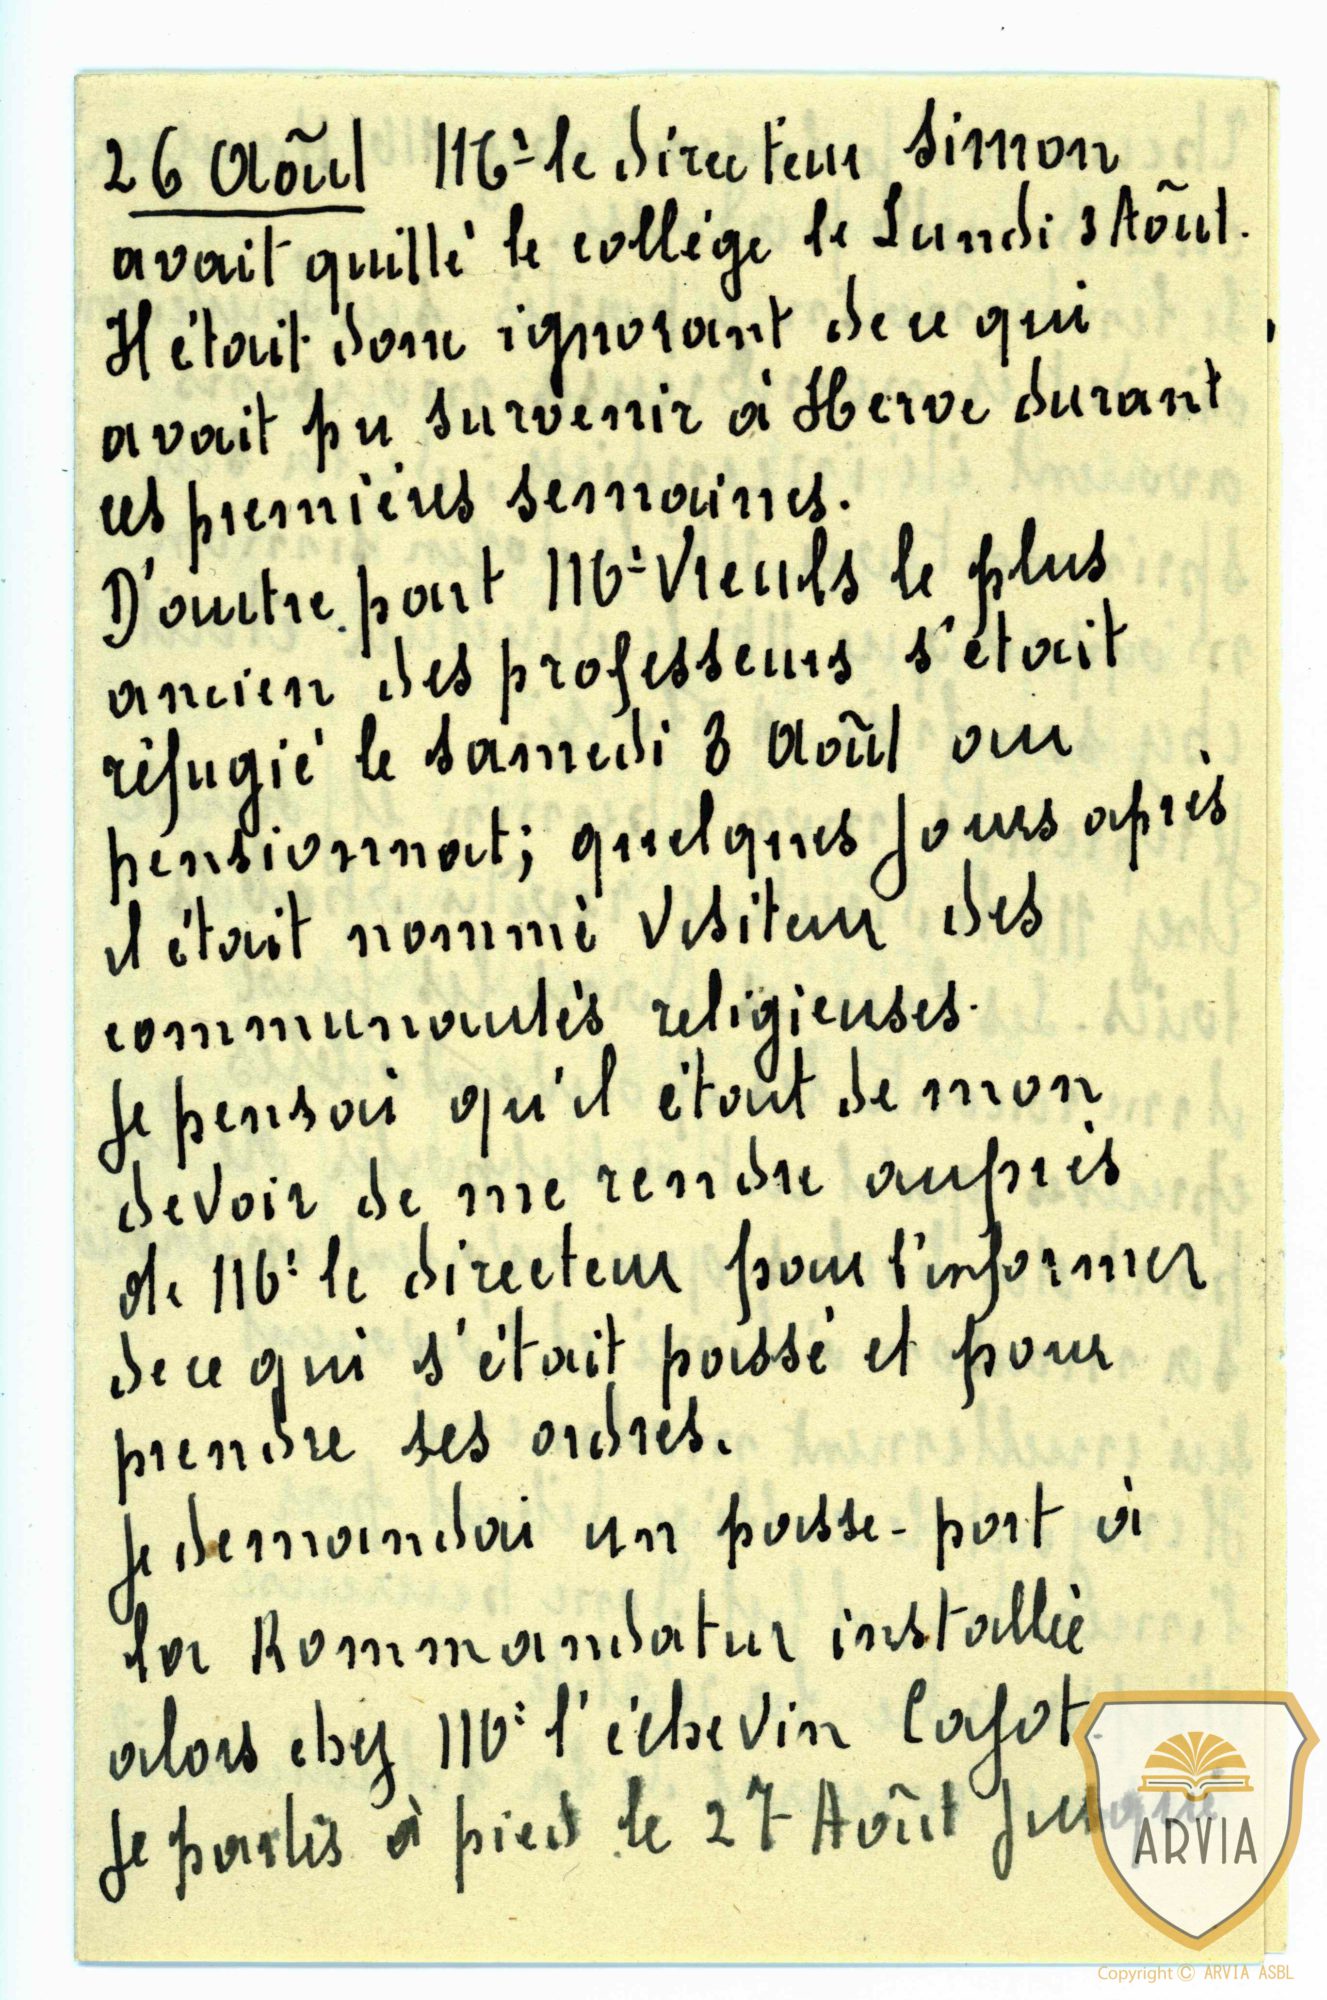 26 Août Mr le directeur Simon
avait quitté le collége le Lundi 3 Août.
Il était donc ignorant de ce qui
avait pu survenir à Herve durant
ces premières semaines.
D'autre part Mr Vieuls le plus
ancien des professeurs s'était
réfugié le samedi 8 Août au
pensionnat; quelques jours après
il était nommé Visiteur des
communautés religieuses.
Je pensai qu'il était de mon
devoir de me rendre auprès
de Mr le directeur pour l'informer
de ce qui s'était passé et pour
prendre ses ordres.
Je demandai un passe-port à
la Kommandatur installée
alors chez Mr l'échevin
Je partis à pied le 27 Août
ARVIA
Copyright © ARVIA ASBL